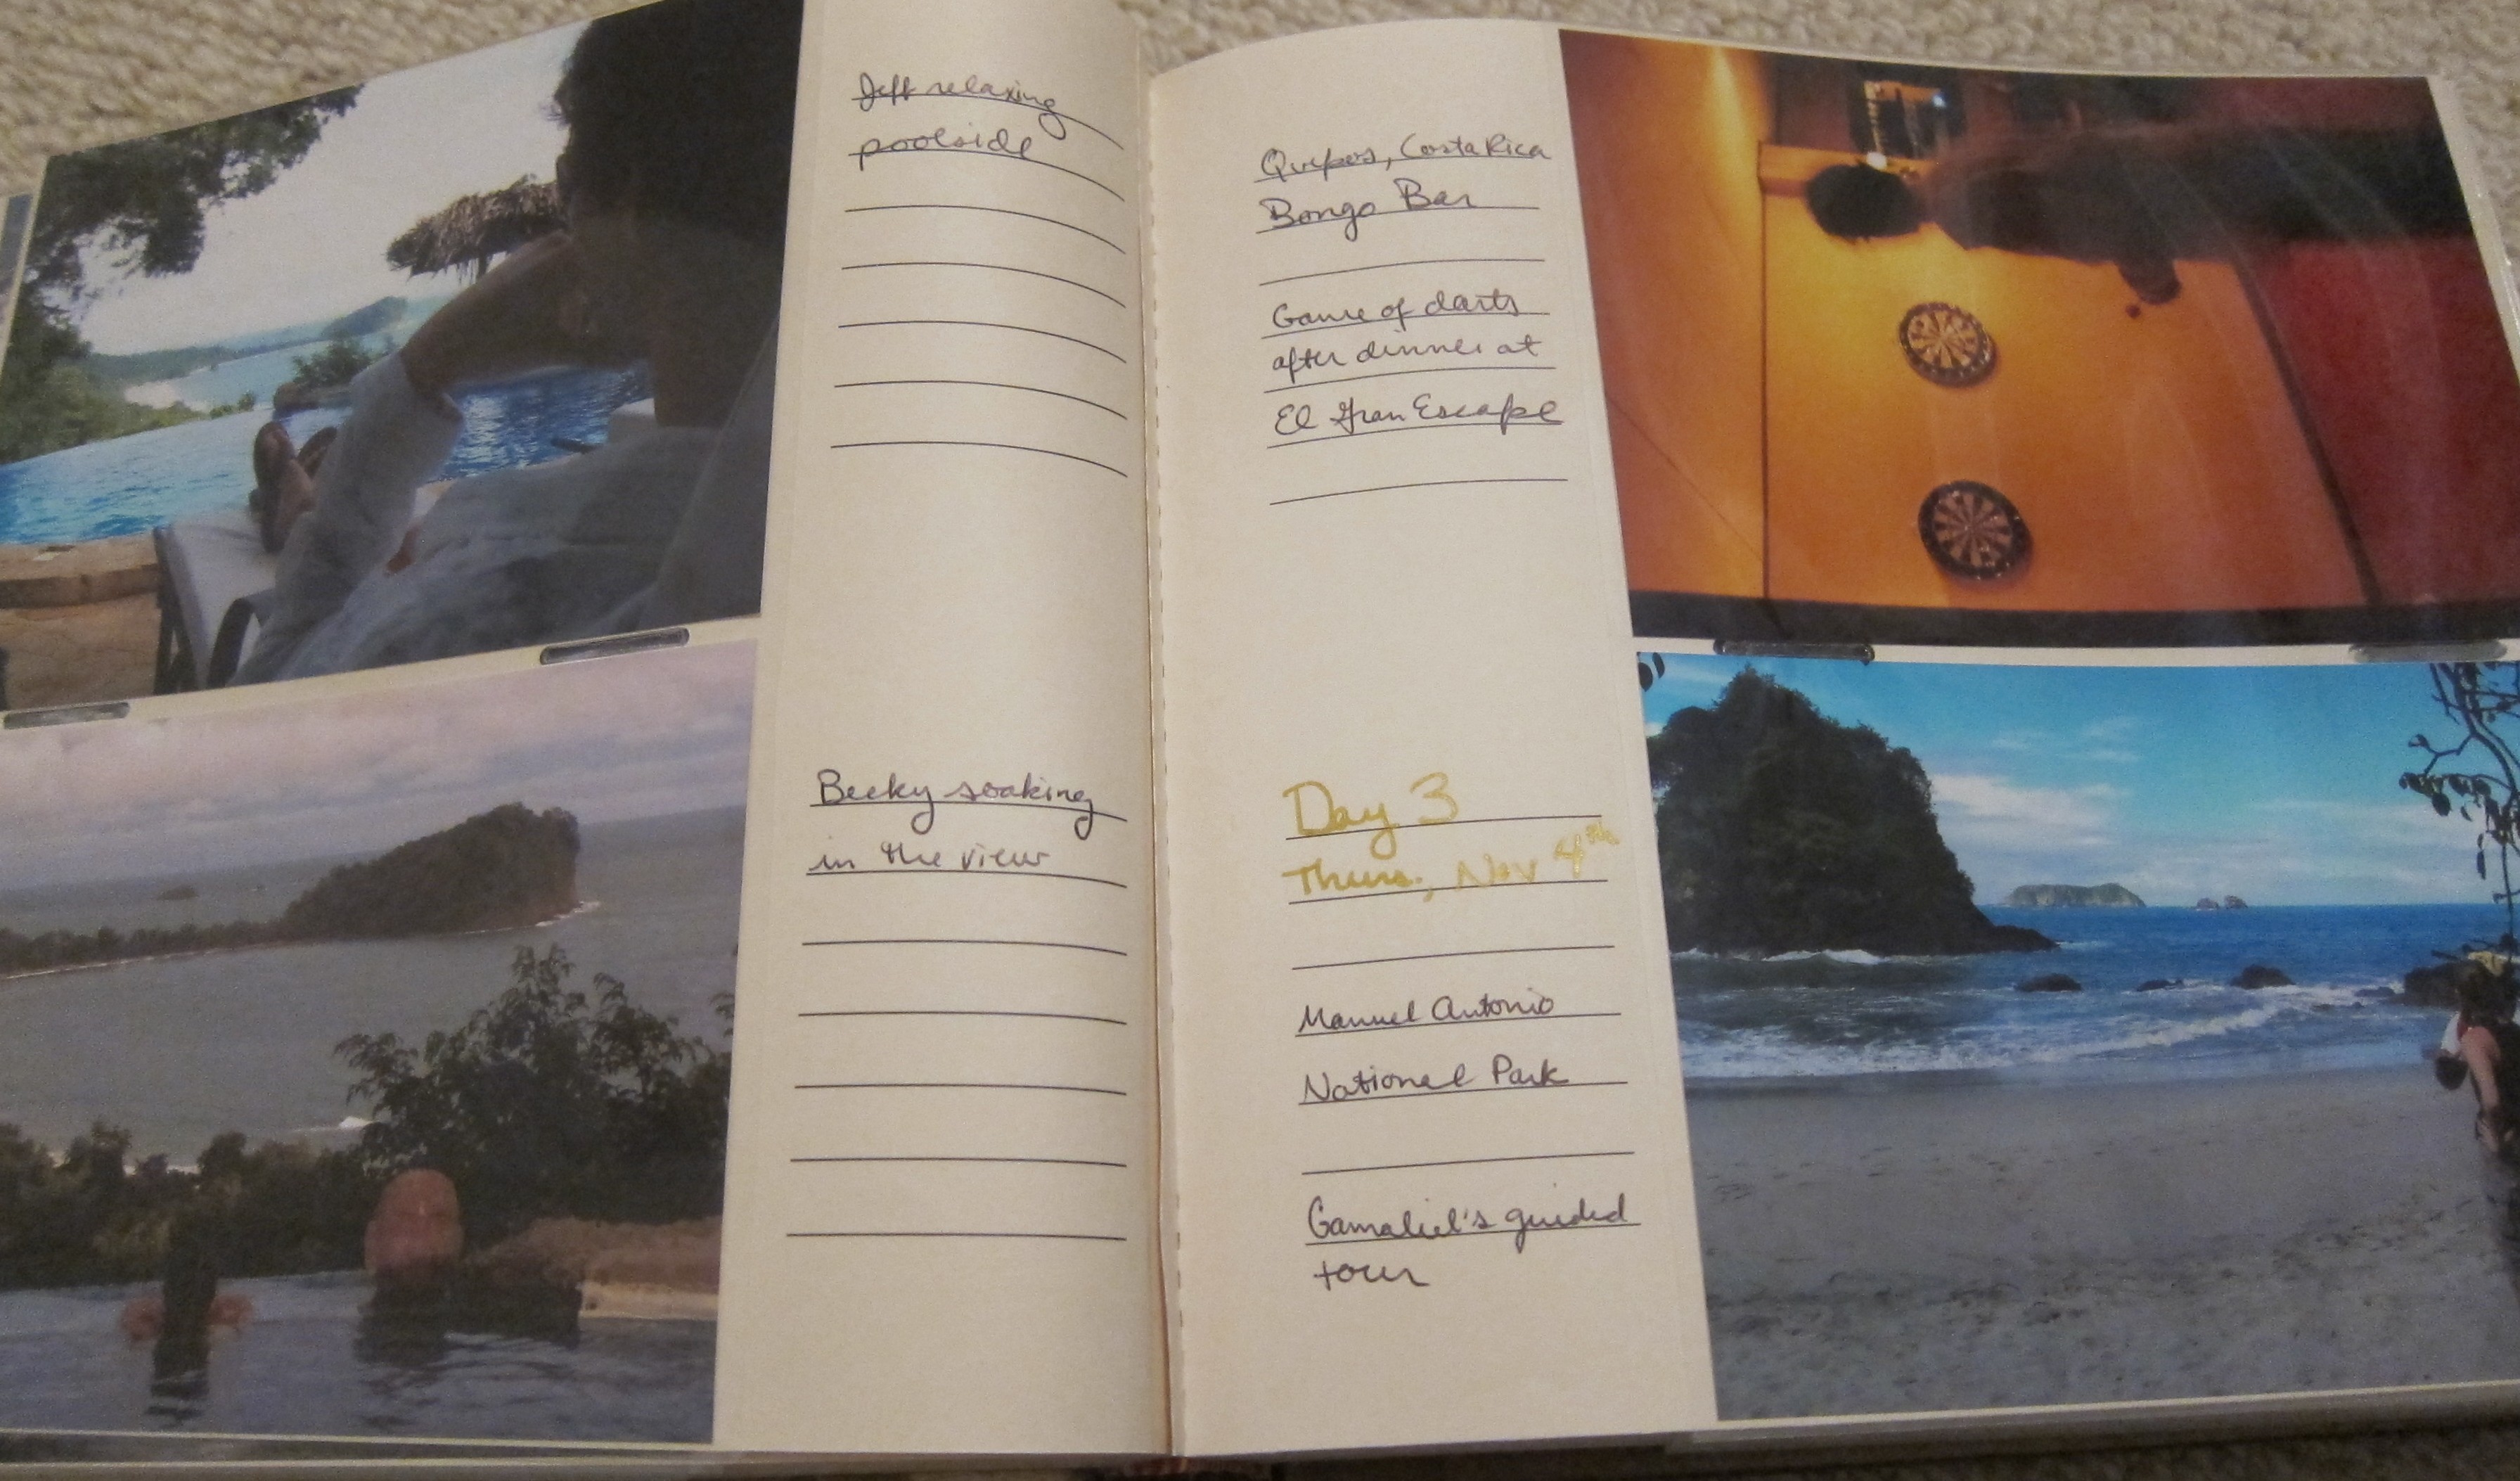 Jeff relaxing
poolside
Becky soaking
in the view
Quepos, Costa Rica
Bongo Bar
Game of darts
after dinner at
El Gran Escape
Day 3
Thurs., Nov 4th
Manuel Antonio
National Park
Gamaliel's guided
tour